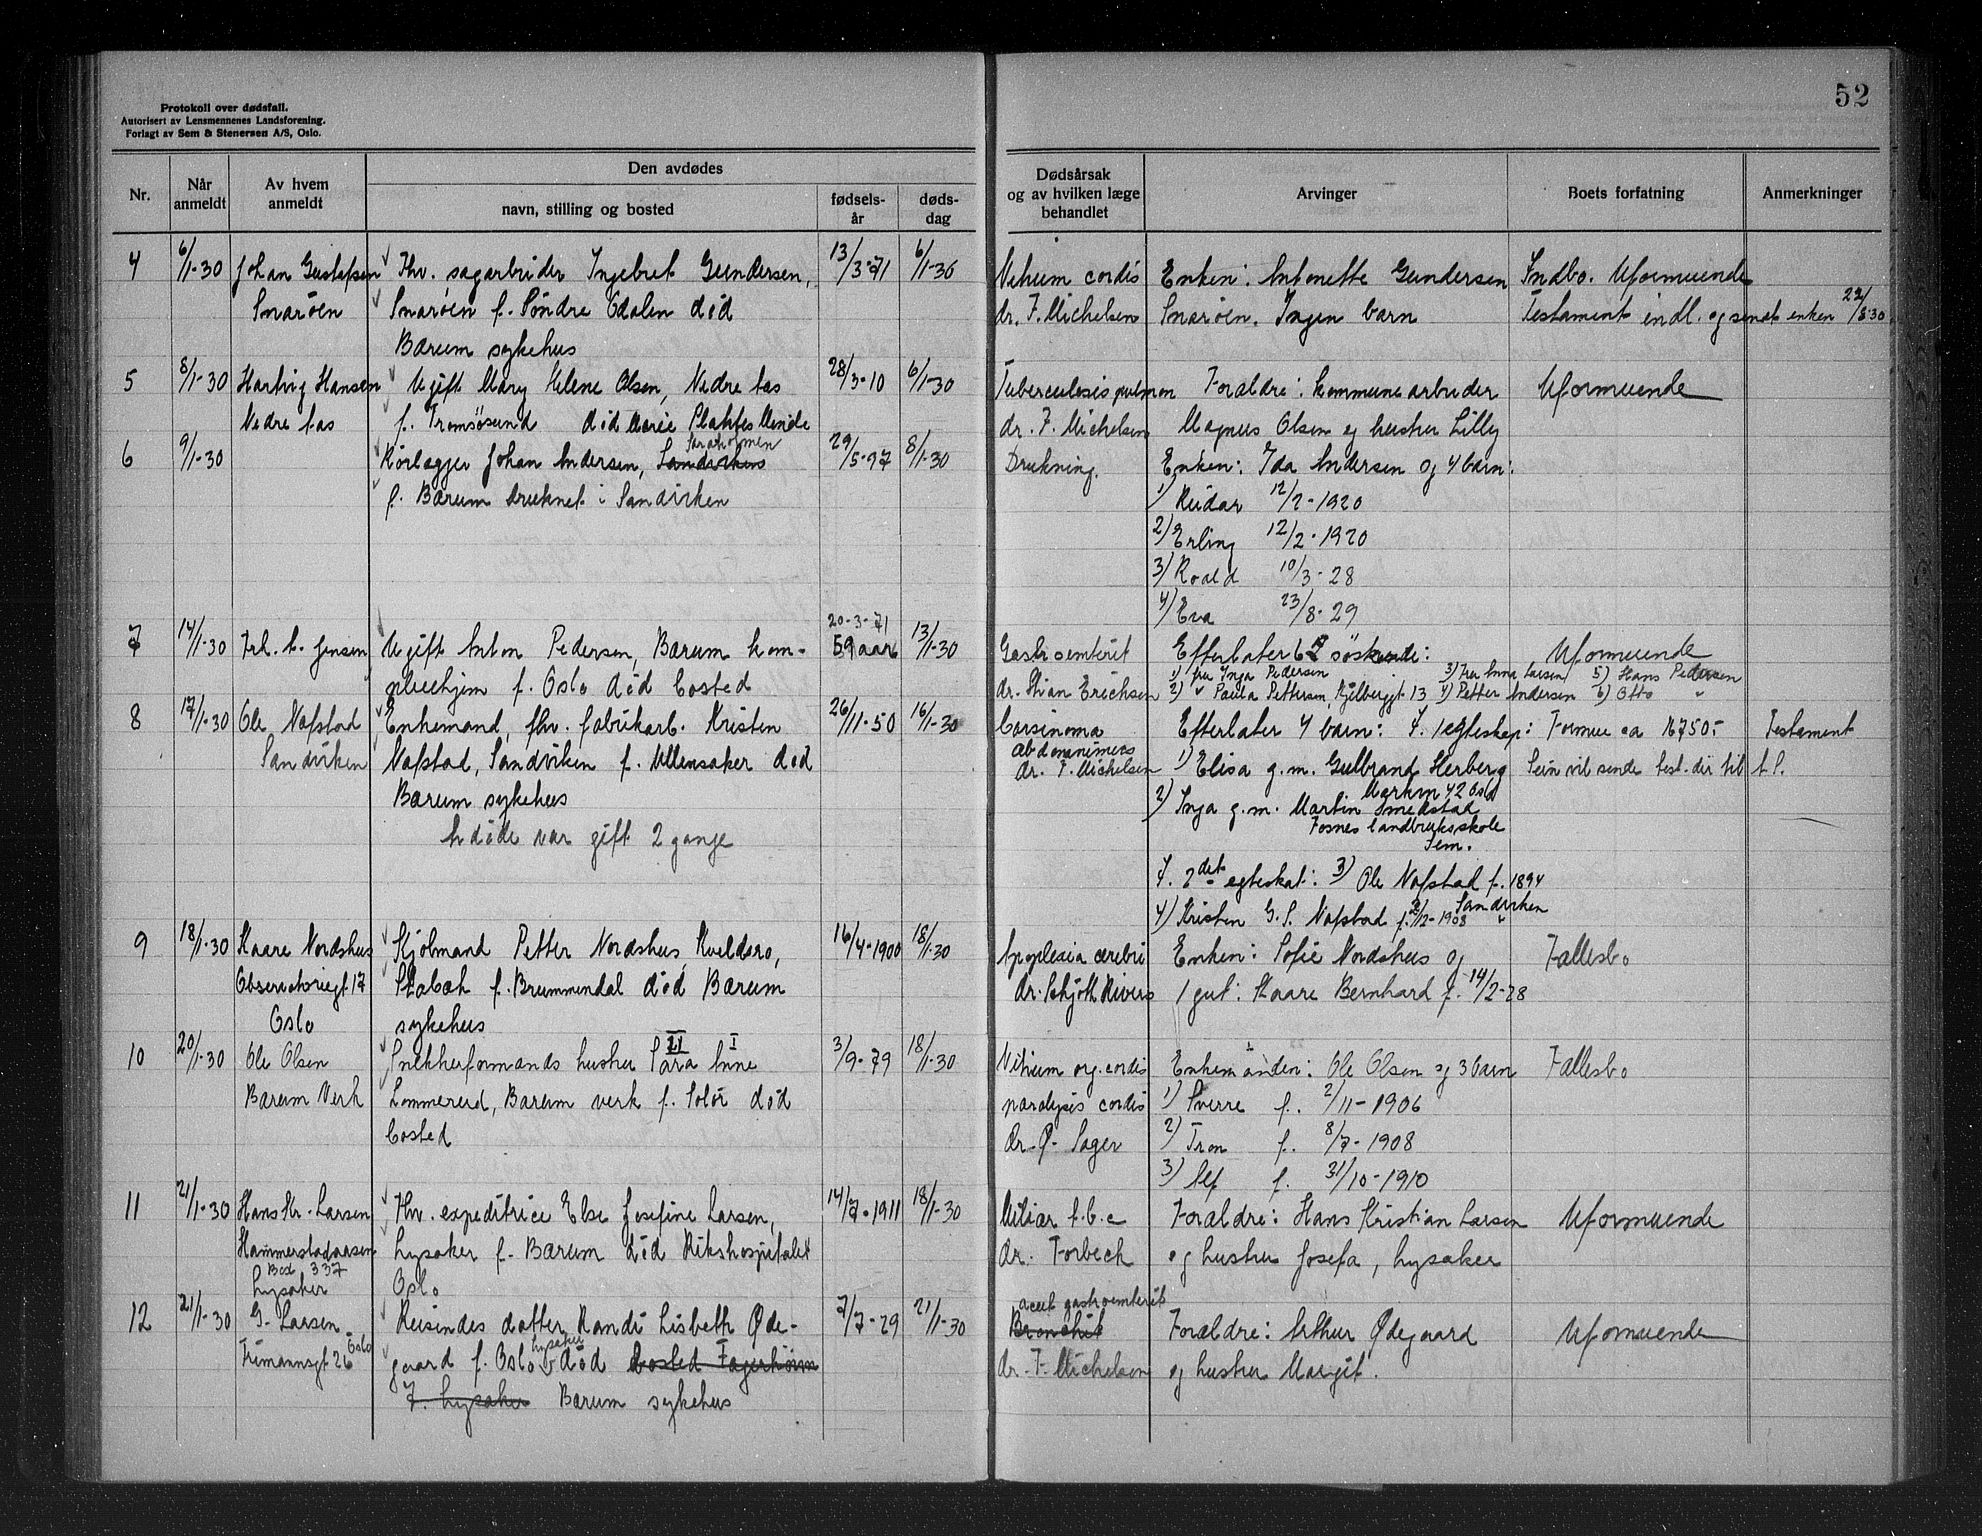 Protokoll over dødsfall.
Autorisert av Lensmennenes Landsforening.
Forlagt av Sem & Stenersen A/S, Oslo.
52
Nr.
Når anmeldt
Av hvem anmeldt
Den avdødes
navn, stilling og bosted
fødsels-år
døds-dag
Dødsårsak og av hvilken læge behandlet
Arvinger
Boets forfatning
Anmerkninger
4 6/1-30 Johan Gustafsen Fhv. sagarbeider Ingebret Gundersen, 13/3-71 6/1-30 Vitium cordis Enken: Antonette Gundersen Indbo. Uformuende
Snarøen Snarøen f. Søndre Odalen død dr. F. Michelsen Snarøen. Ingen barn Testament indl. og sendt enken 22/3 30
Bærum sykehus
5 8/1-30 Hartvig Hansen Ugift Mary Helene Olsen, Nedre Aas 28/3-10 6/1-30 Tuberculosis pulmon Forældre: kommunearbeider Uformuende
Nedre Aas f. Tromsøsund død Marie Plahtes Minde dr. F. Michelsen Magnus Olsen og hustru Lilly
6 9/1-30 Rørlægger Johan Andersen, Sandviken Saraholmen 29/5-97 8/1-30 Drukning. Enken: Ida Andersen og 4 barn:
f. Bærum druknet i Sandviken 1) Reidar 12/2-1920
2) Erling 12/2-1920
3) Roald 10/3-28
4) Eva 23/8-29
20-3-71
7 14/1-30 Frk. A. Jensen Ugift Anton Pedersen, Bærum kom- 59 aar 13/1-30 Gastroenterit Efterlater 6 søskende: Uformuende
pleiehjem f. Oslo død bosted dr. Stian Erichsen 1) fru Inga Pedersen 3) Fru Anna Larsen 5) Hans Pedersen
2) " Paula Pettersen, Kjelbergt 13 4) Petter Andersen 6) Otto "
8 17/1-30 Ole Nafstad Enkemand, fhv. fabrikarb. Kristen 26/11-50 16/1-30 Carsinoma Efterlater 4 barn: I. 1 egteskap: Formue ca 16750.- Testament
Sandviken Nafstad, Sandviken f. Ullensaker død dr. F. Michelsen 1) Elisa g.m. Gulbrand Herberg
Markvn 42 Oslo
Bærum sykehus 2) Inga g.m. Martin Smedstad
Fosnes landbruksskole
Sem.
Avdøde var gift 2 gange
I. 2det egteskab: 3) Ole Nafstad f. 1894
Sandviken
4) Kristen G. S. Nafstad f. 2/12-1908 "
9 18/1-30 Kaare Nordshus Skjølmand Petter Nordshus Kveldsro, 16/4-1900 18/1-30 Apoplexia cerebri Enken: Sofie Nordshus og Fallesbo
Observatoriegt 17 Stabæk f. Brummundal død Bærum dr. Schjøth Rivers 1 gut: Kaare Bernhard f. 14/2-28
Oslo sykehus
10 20/1-30 Ole Olsen Snekkerformands hustru Sara II Anne I 3/9-79 18/1-30 Vitium org. cordis Enkemanden: Ole Olsen og 3 barn Fallesbo
Bærum Verk Lommerud, Bærum verk f. Solør død paralysis cordis 1) Sverre f. 2/11-1906
bosted dr. Ø. Sager 2) Tron f. 8/7-1908
3) Alf f. 31/10-1910
11 21/1-30 Hans Kr. Larsen Fhv. expeditrice Else Josefine Larsen, 14/7-1911 18/1-30 Miliær t.b.c Forældre: Hans Kristian Larsen Uformuende
Hammerstadaasen Lysaker f. Bærum død Rikshospitalet dr. Torbeck og hustru Josefa, Lysaker
Box 337
Lysaker Oslo
12 21/1-30 G. Larsen Reisendes datter Randi Lisbeth Øde- 7/7-29 21/1-30 acut gastroenterit Bronchit Forældre: Arthur Ødegaard Uformuende
Frimannsgt 26 Oslo gaard f. Oslo Lysaker død bosted Fagerheim dr. F. Michelsen og hustru Margit.
7. Lysaker Bærum sykehus